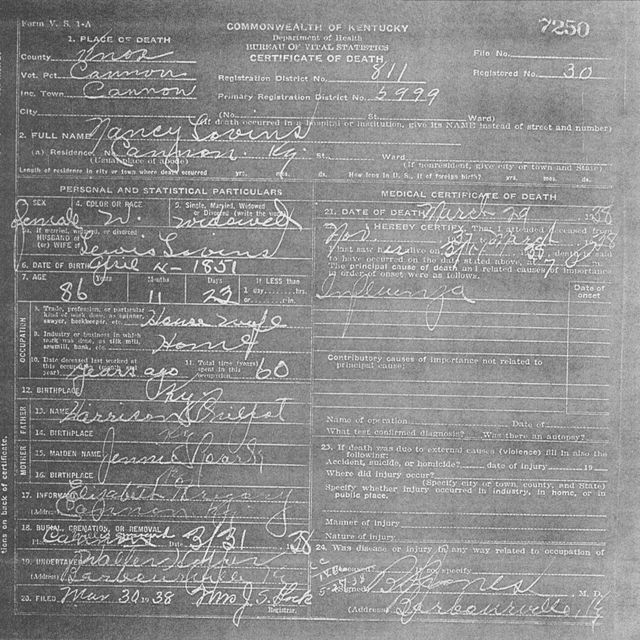 Form V. S. 1-A
COMMONWEALTH OF KENTUCKY
Department of Health
BUREAU OF VITAL STATISTICS
CERTIFICATE OF DEATH
7250
1. PLACE OF DEATH
County Knox
Vot. Pct. Cannon
Inc. Town Cannon
Registration District No. 811
Primary Registration District No. 5999
File No.
Registered No. 30
City (No. St. Ward)
(If death occurred in a hospital or institution, give its NAME instead of street and number)
2. FULL NAME Nancy Lovins
(a) Residence. No. Cannon Ky. St. Ward
(Usual place of abode) (If nonresident, give city or town and State)
Length of residence in city or town where death occurred yrs. mos. ds. How long in U. S., if of foreign birth? yrs. mos. ds.
PERSONAL AND STATISTICAL PARTICULARS
3. SEX 4. COLOR OR RACE 5. Single, Married, Widowed or Divorced (write the word)
Female W. Widowed
5a. If married, widowed, or divorced
HUSBAND of
(or) WIFE of Lewis Lovins
6. DATE OF BIRTH April 4 - 1851
7. AGE Years Months Days If LESS than
86 11 23 1 day, hrs.
or min.
OCCUPATION
8. Trade, profession, or particular kind of work done, as spinner, sawyer, bookkeeper, etc. House wife
9. Industry or business in which work was done, as silk mill, sawmill, bank, etc. Home
10. Date deceased last worked at this occupation (month and year) years ago
11. Total time (years) spent in this occupation 60
12. BIRTHPLACE Ky.
FATHER
13. NAME Harrison
14. BIRTHPLACE Ky
MOTHER
15. MAIDEN NAME Jennie
16. BIRTHPLACE
17. INFORMANT Elizabeth Gregory
(Address) Cannon Ky
18. BURIAL, CREMATION, OR REMOVAL
Place Cannon Date 3/31 1938
19. UNDERTAKER Walter
(Address) Barbourville Ky
20. FILED Mar. 30 1938
Registrar.
MEDICAL CERTIFICATE OF DEATH
21. DATE OF DEATH March 29 1938
22. I HEREBY CERTIFY, That I attended deceased from
I last saw her alive on death is said
to have occurred on the date stated above,
The principal cause of death and related causes of importance in order of onset were as follows:
Date of onset
Influenza
Contributory causes of importance not related to principal cause:
Name of operation Date of
What test confirmed diagnosis? Was there an autopsy?
23. If death was due to external causes (violence) fill in also the following:
Accident, suicide, or homicide? date of injury 19
Where did injury occur?
(Specify city or town, county, and State)
Specify whether injury occurred in industry, in home, or in public place.
Manner of injury
Nature of injury
24. Was disease or injury in any way related to occupation of
If so, specify
(Signed) M. D.
(Address) Barbourville, Ky
tions on back of certificate.